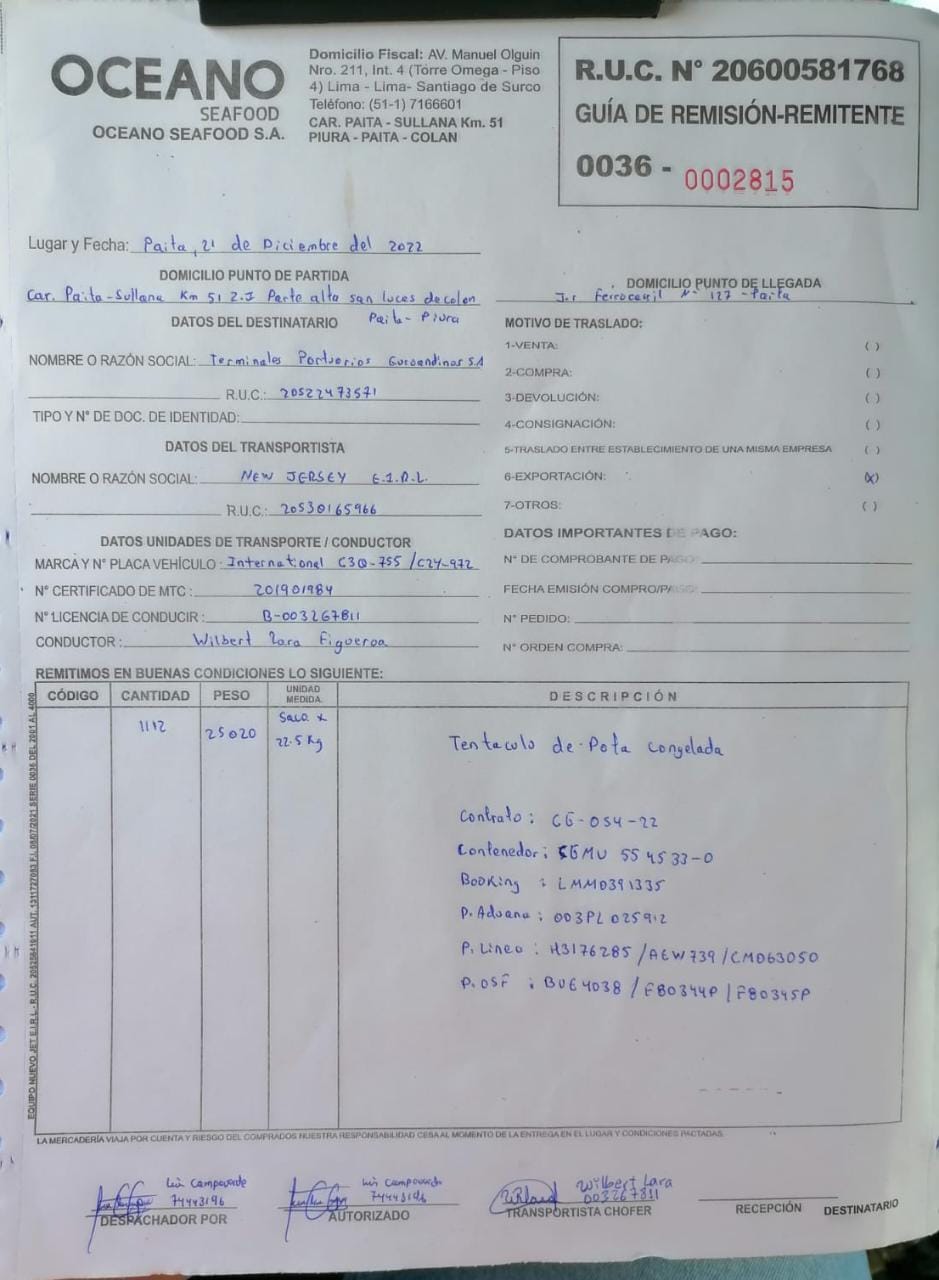 OCEANO
SEAFOOD
OCEANO SEAFOOD S.A.
Domicilio Fiscal: AV. Manuel Olguin
Nro. 211, Int. 4 (Torre Omega - Piso
4) Lima - Lima- Santiago de Surco
Teléfono: (51-1) 7166601
CAR. PAITA - SULLANA Km. 51
PIURA - PAITA - COLAN
R.U.C. N° 20600581768
GUÍA DE REMISIÓN-REMITENTE
0036 - 0002815
Lugar y Fecha: Paita, 21 de Diciembre del 2022
DOMICILIO PUNTO DE PARTIDA
Car. Paita-Sullana Km 51 Z.I Parte alta san luces de colan
Paita - Piura
DOMICILIO PUNTO DE LLEGADA
Jr Ferrocarril N° 127 - Paita
DATOS DEL DESTINATARIO
NOMBRE O RAZÓN SOCIAL: Terminales Portuarios Euroandinos S.A
R.U.C.: 20522473571
TIPO Y N° DE DOC. DE IDENTIDAD:
DATOS DEL TRANSPORTISTA
NOMBRE O RAZÓN SOCIAL: NEW JERSEY E.I.R.L.
R.U.C.: 20530165966
DATOS UNIDADES DE TRANSPORTE / CONDUCTOR
MARCA Y N° PLACA VEHÍCULO: International C3Q-755 / C2Y-972
N° CERTIFICADO DE MTC: 201901984
N° LICENCIA DE CONDUCIR: B-003267811
CONDUCTOR: Wilbert Lara Figueroa
MOTIVO DE TRASLADO:
1-VENTA: ( )
2-COMPRA: ( )
3-DEVOLUCIÓN: ( )
4-CONSIGNACIÓN: ( )
5-TRASLADO ENTRE ESTABLECIMIENTO DE UNA MISMA EMPRESA ( )
6-EXPORTACIÓN: (x)
7-OTROS: ( )
DATOS IMPORTANTES DE PAGO:
N° DE COMPROBANTE DE PAGO:
FECHA EMISIÓN COMPRO/PAGO:
N° PEDIDO:
N° ORDEN COMPRA:
REMITIMOS EN BUENAS CONDICIONES LO SIGUIENTE:
CÓDIGO CANTIDAD PESO UNIDAD MEDIDA. DESCRIPCIÓN
1112 25020 Saco x
22.5 Kg
Tentaculo de Pota Congelada
Contrato: CG-054-22
Contenedor: SGMU 554533-0
Booking: LMM0391335
P. Aduana: 003PL025912
P. Lineo: H3176285 / AEW739 / CMD63050
P. OSF: BUE4038 / F80344P / F80345P
EQUIPO NUEVO JET E.I.R.L. - R.U.C. 20525841911 AUT. 1311727083 F.I. 08/07/2021 SERIE 0036 DEL 2001 AL 4000
LA MERCADERÍA VIAJA POR CUENTA Y RIESGO DEL COMPRADOS NUESTRA RESPONSABILIDAD CESA AL MOMENTO DE LA ENTREGA EN EL LUGAR Y CONDICIONES PACTADAS.
Campoverde
74443196
DESPACHADOR POR
Campoverde
74443196
AUTORIZADO
Wilbert Lara
003267811
TRANSPORTISTA CHOFER
RECEPCIÓN DESTINATARIO